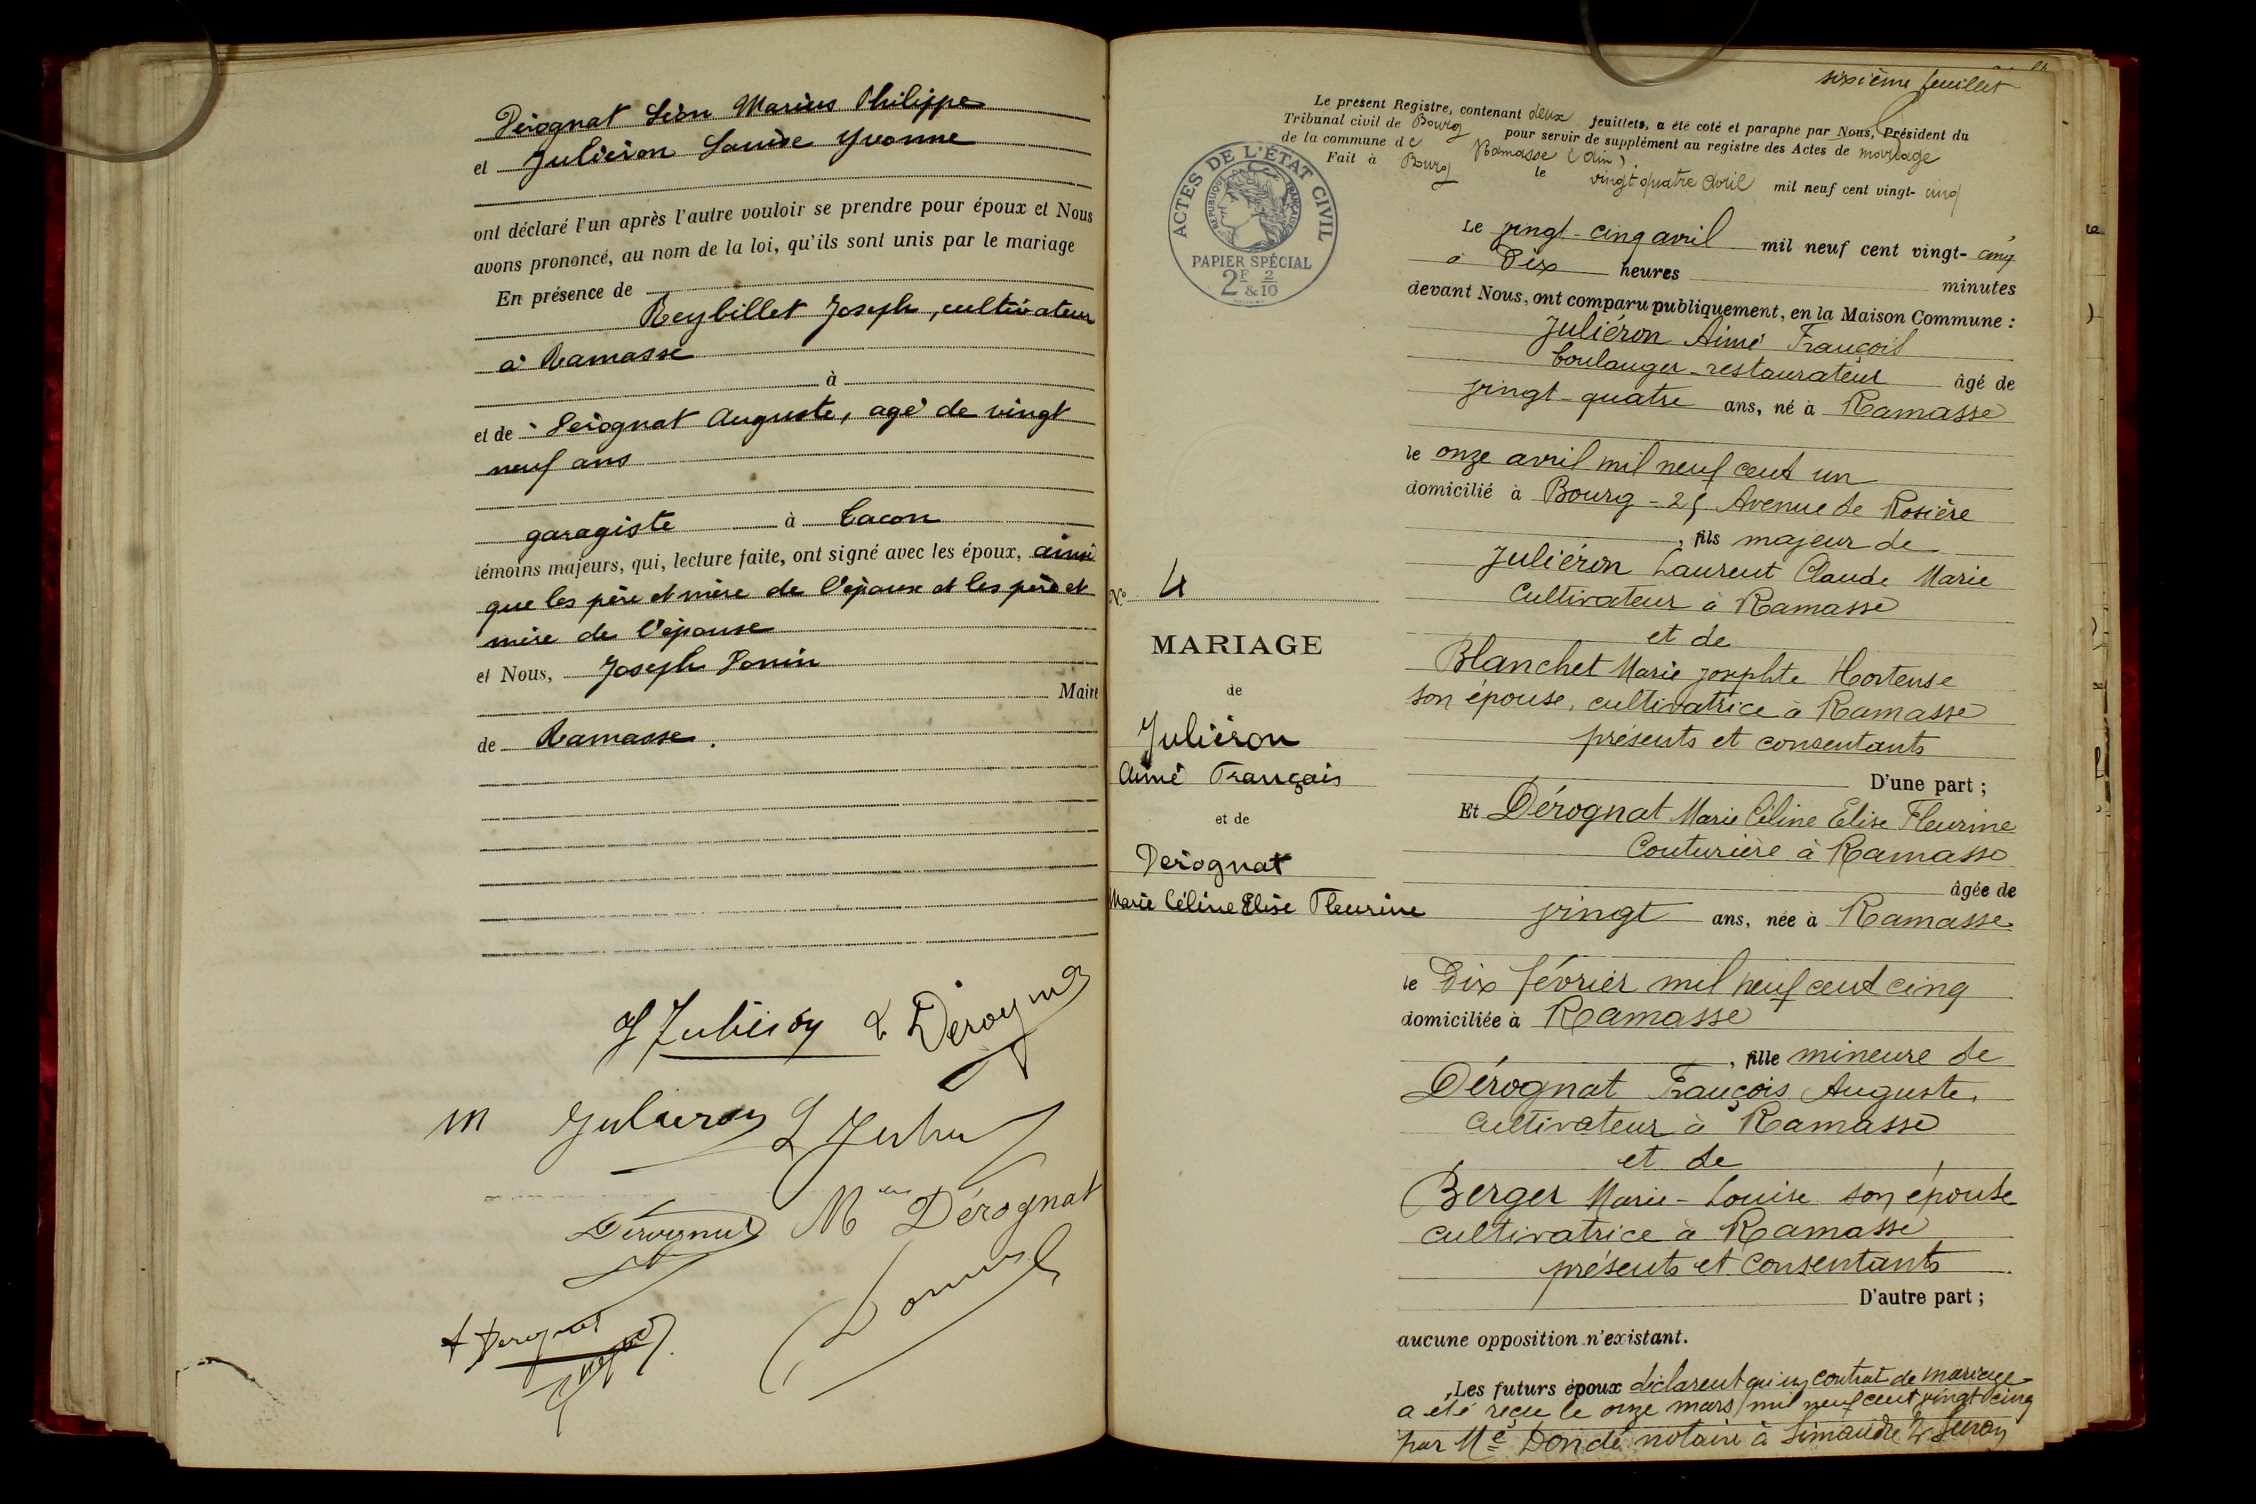 Dérognat Léon Marius Philippe
et Juliéron Louise Yvonne
ont déclaré l'un après l'autre vouloir se prendre pour époux et Nous
avons prononcé, au nom de la loi, qu'ils sont unis par le mariage
En présence de
Reybillet Joseph, cultivateur
à Ramasse
à
et de Dérognat Auguste, agé de vingt
neuf ans
garagiste à
témoins majeurs, qui, lecture faite, ont signé avec les époux, ainsi
que les père et mère de l'époux et les père et
mère de l'épouse
et Nous, Joseph
Maire
de Ramasse.
L Dérognat
M Juliéron
Dérognat
Dérognat
A Dérognat
sixième feuillet
Le présent Registre, contenant deux feuillets, a été coté et paraphé par Nous, Président du
Tribunal civil de Bourg pour servir de supplément au registre des Actes de mariage
de la commune de Ramasse (Ain)
Fait à Bourg le vingt quatre Avril mil neuf cent vingt-cinq
ACTES DE L'ÉTAT CIVIL
RÉPUBLIQUE FRANÇAISE
PAPIER SPÉCIAL
2F & 2/10
Le vingt-cinq avril mil neuf cent vingt-cinq
à Dix heures minutes
devant Nous, ont comparu publiquement, en la Maison Commune :
Juliéron Aimé François
boulanger-restaurateur âgé de
vingt-quatre ans, né à Ramasse
le onze avril mil neuf cent un
domicilié à Bourg - 25 Avenue de Rosière
, fils majeur de
Juliéron Laurent Claude Marie
Cultivateur à Ramasse
et de
Blanchet Marie Josephte Hortense
son épouse, cultivatrice à Ramasse
présents et consentants
D'une part ;
Et Dérognat Marie Céline Elise Fleurine
Couturière à Ramasse
âgée de
vingt ans, née à Ramasse
le Dix février mil neuf cent cinq
domiciliée à Ramasse
, fille mineure de
Dérognat François Auguste,
cultivateur à Ramasse
et de
Berger Marie-Louise son épouse
cultivatrice à Ramasse
présents et consentants
D'autre part ;
aucune opposition n'existant.
Les futurs époux déclarent qu'un contrat de mariage
a été reçu le onze mars mil neuf cent vingt cinq
par Me Dondé notaire à Simandre s/ Suran
No 4
MARIAGE
de
Juliéron
Aimé Français
et de
Dérognat
Marie Céline Elise Fleurine